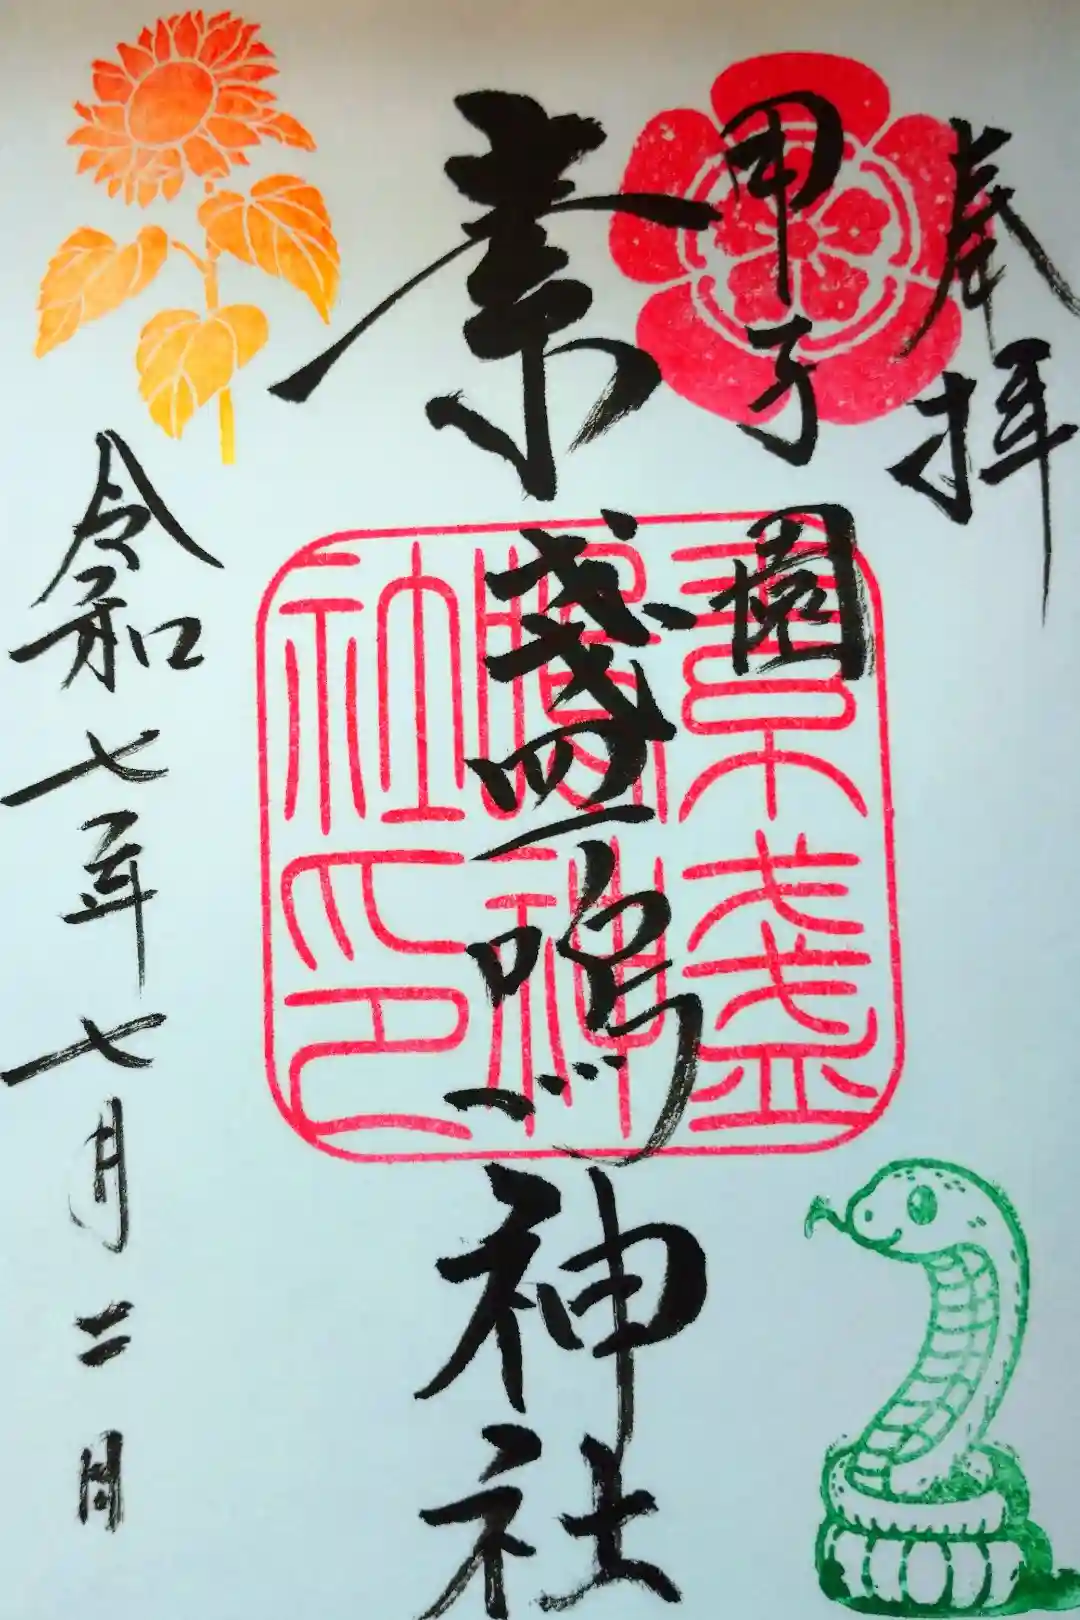 奉拝
甲子園
素盞嗚神社
素盞
嗚神
社印
令和七年七月二日